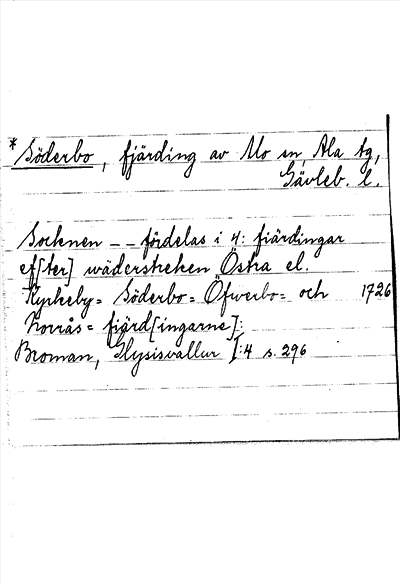 * Söderbo, fjärding av Mo sn, Ala tg,
Gävleb. l.
Socknen -- fördelas i 4: fiärdingar
ef[ter] wäderstreken Östra el.
Kyrkeby= Söderbo= Öfwerbo= och 1726
Norrås= fjärd[ingarne]:
Broman, Glysisvallur I:4 s. 296